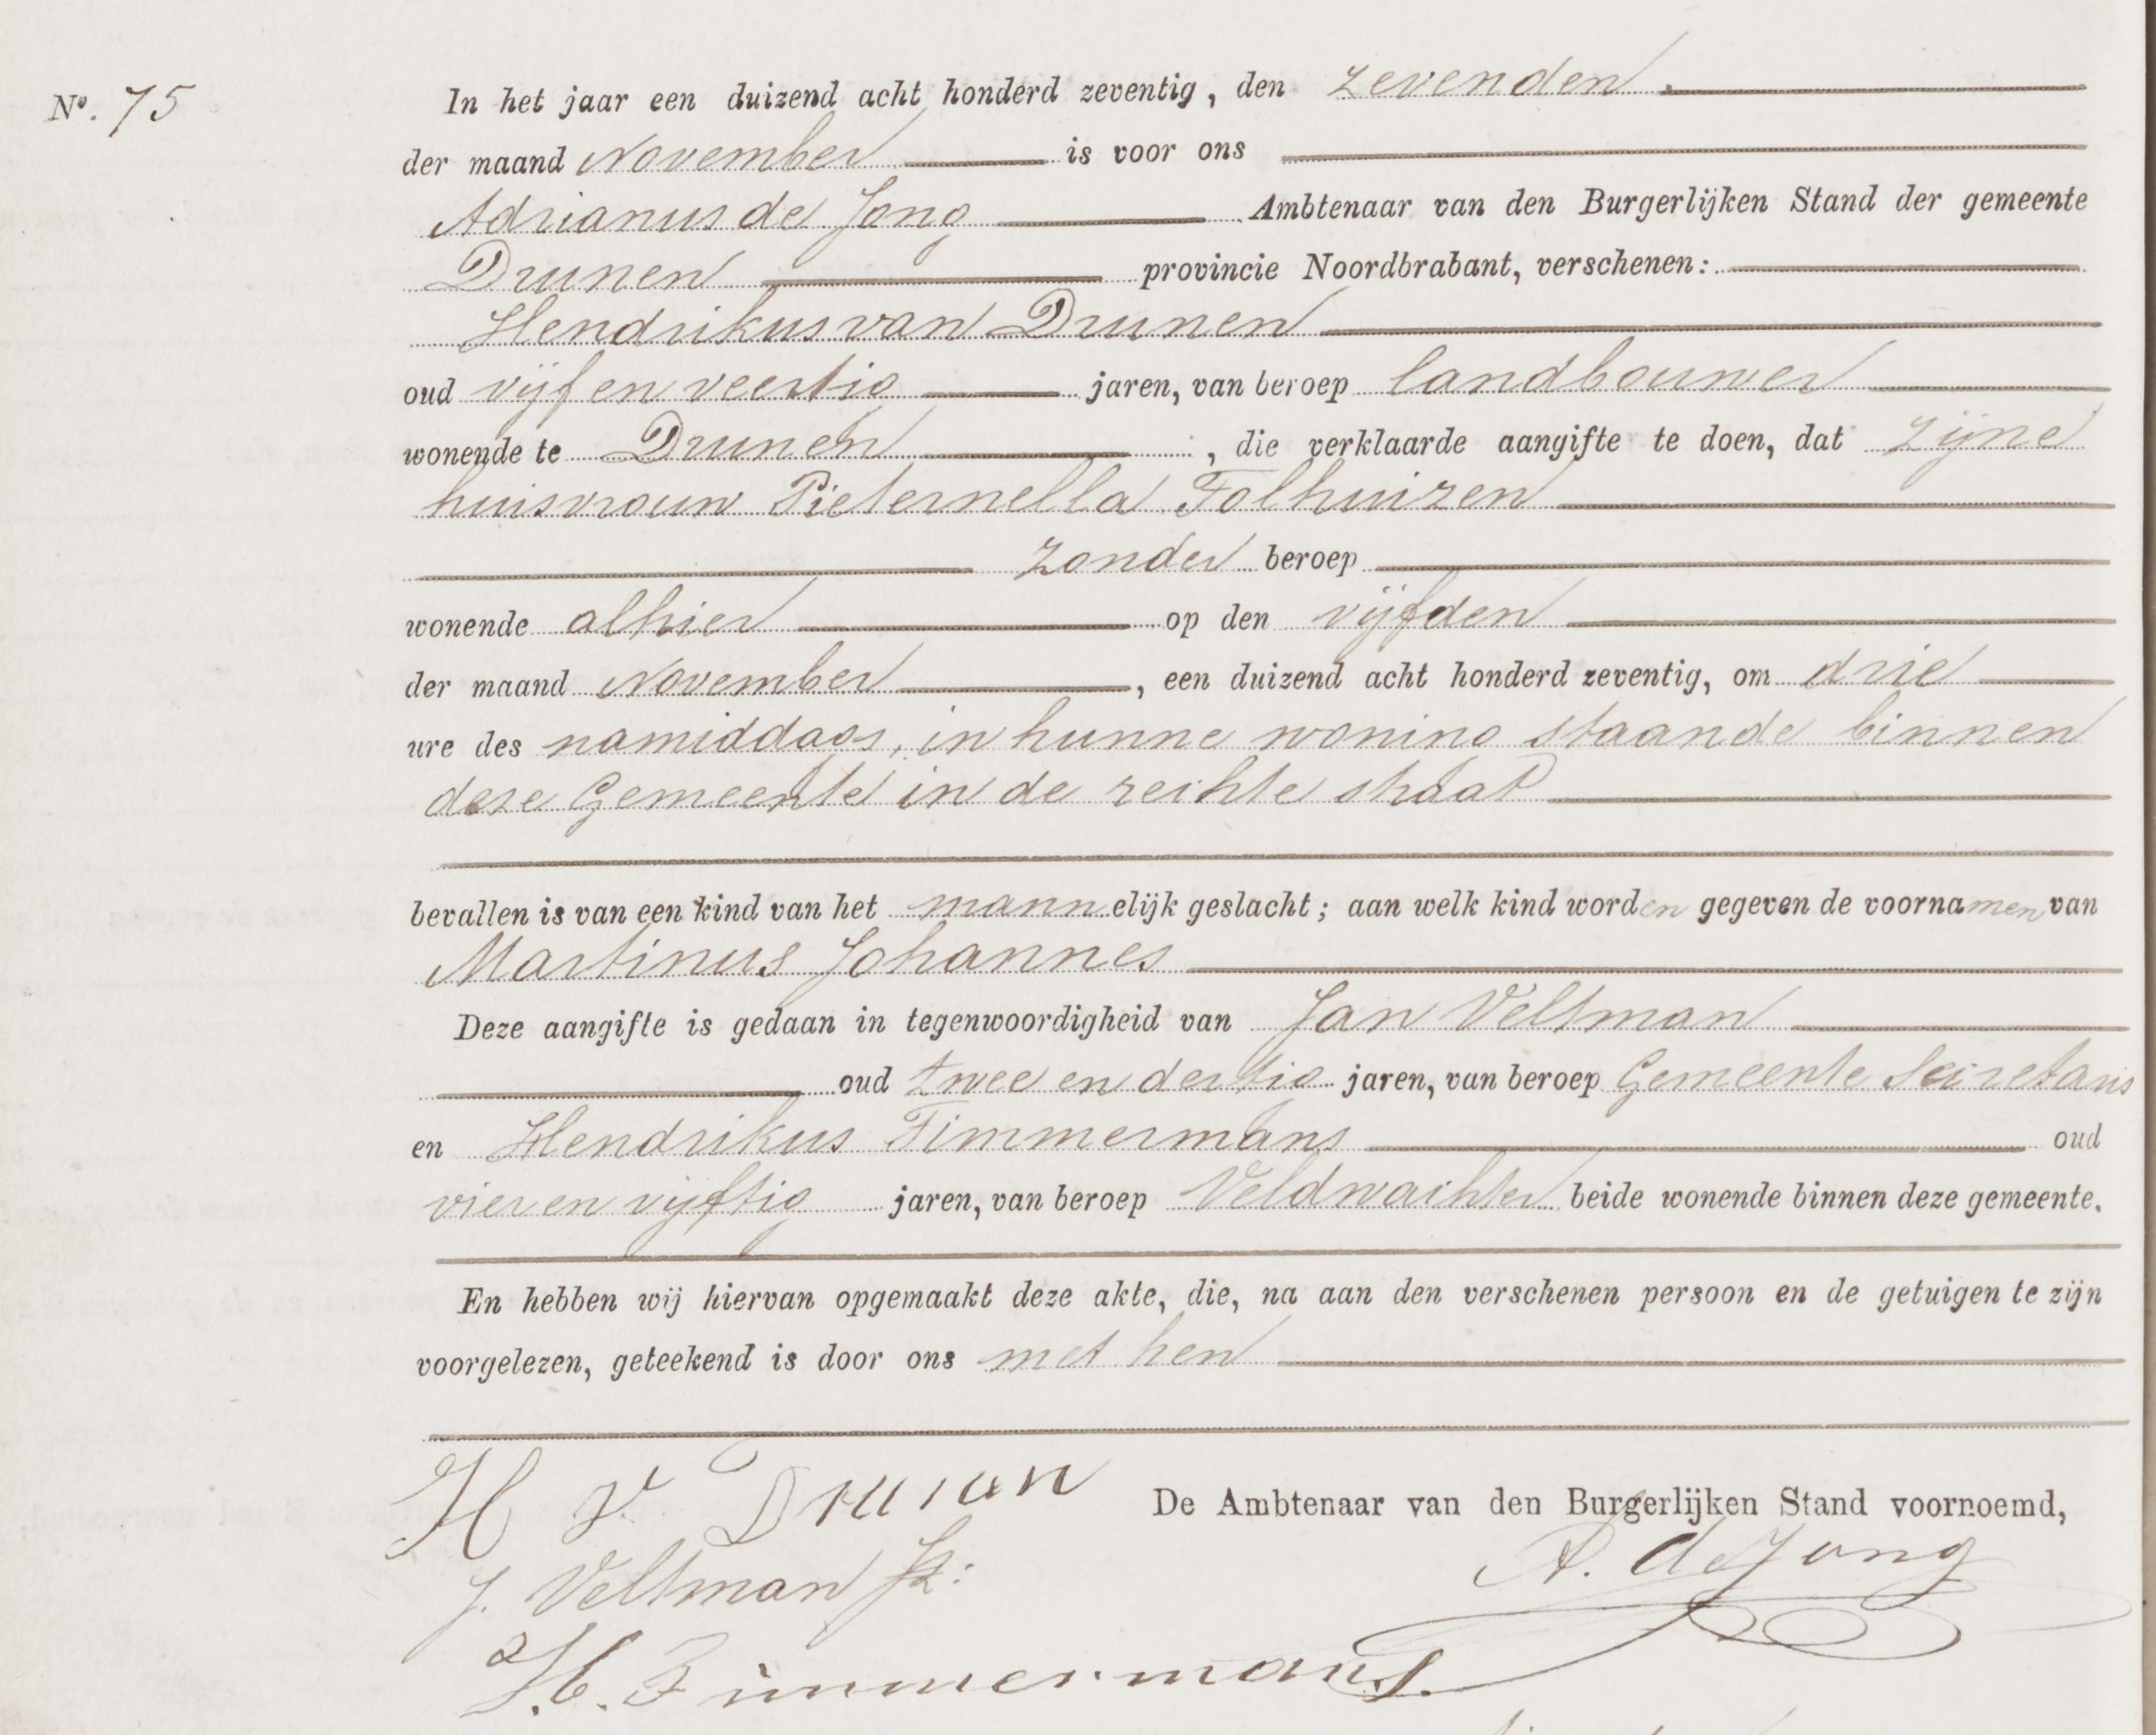 No. 75
In het jaar een duizend acht honderd zeventig, den zevenden
der maand November is voor ons
Adrianus de Jong Ambtenaar van den Burgerlijken Stand der gemeente
Drunen provincie Noordbrabant, verschenen:
Hendrikus van Drunen
oud vijf en veertig jaren, van beroep landbouwer
wonende te Drunen, die verklaarde aangifte te doen, dat zijne
huisvrouw Pieternella Tolhuizen
zonder beroep
wonende alhier op den vijfden
der maand November, een duizend acht honderd zeventig, om drie
ure des namiddags, in hunne woning staande binnen
deze Gemeente in de rechte straat
bevallen is van een kind van het mannelijk geslacht; aan welk kind worden gegeven de voornamen van
Martinus Johannes
Deze aangifte is gedaan in tegenwoordigheid van Jan Veltman
oud twee en dertig jaren, van beroep Gemeente Secretaris
en Hendrikus Timmermans oud
vier en vijftig jaren, van beroep Veldwachter beide wonende binnen deze gemeente.
En hebben wij hiervan opgemaakt deze akte, die, na aan den verschenen persoon en de getuigen te zijn
voorgelezen, geteekend is door ons met hen
H V
De Ambtenaar van den Burgerlijken Stand voornoemd,
A. de Jong
J. Veltman
H. Timmermans.